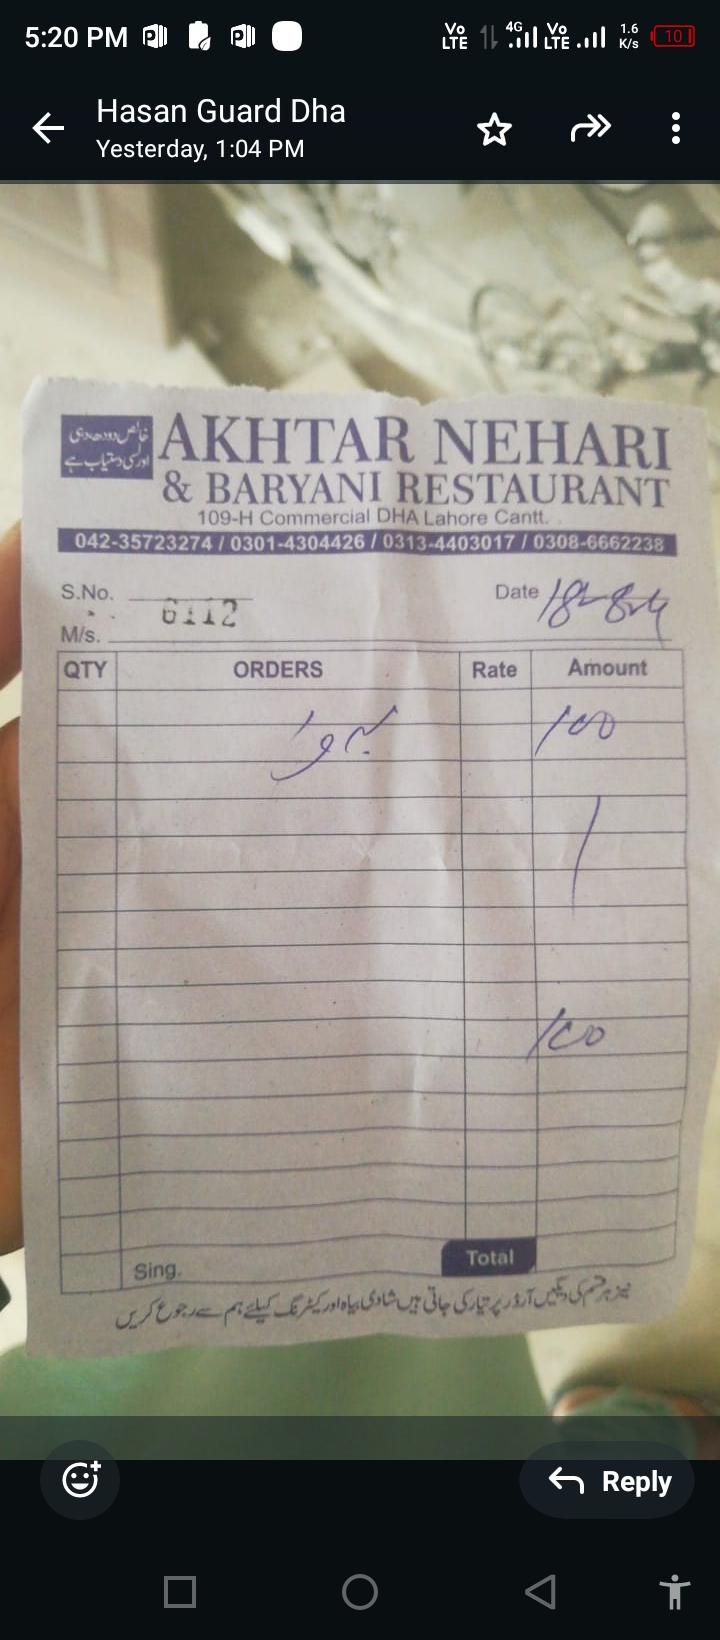 5:20 PM Vo LTE 4G Vo LTE 1.6 K/s 10
Hasan Guard Dha
Yesterday, 1:04 PM
خالص دودھ دہی
اور لسی دستیاب ہے
AKHTAR NEHARI
& BARYANI RESTAURANT
109-H Commercial DHA Lahore Cantt.
042-35723274 / 0301-4304426 / 0313-4403017 / 0308-6662238
S.No. 6112 Date 18-8-24
M/s.
QTY ORDERS Rate Amount
100
100
Total
Sing.
نیز ہر قسم کی دیگیں آرڈر پر تیار کی جاتی ہیں شادی بیاہ اور کیٹرنگ کیلئے ہم سے رجوع کریں
Reply